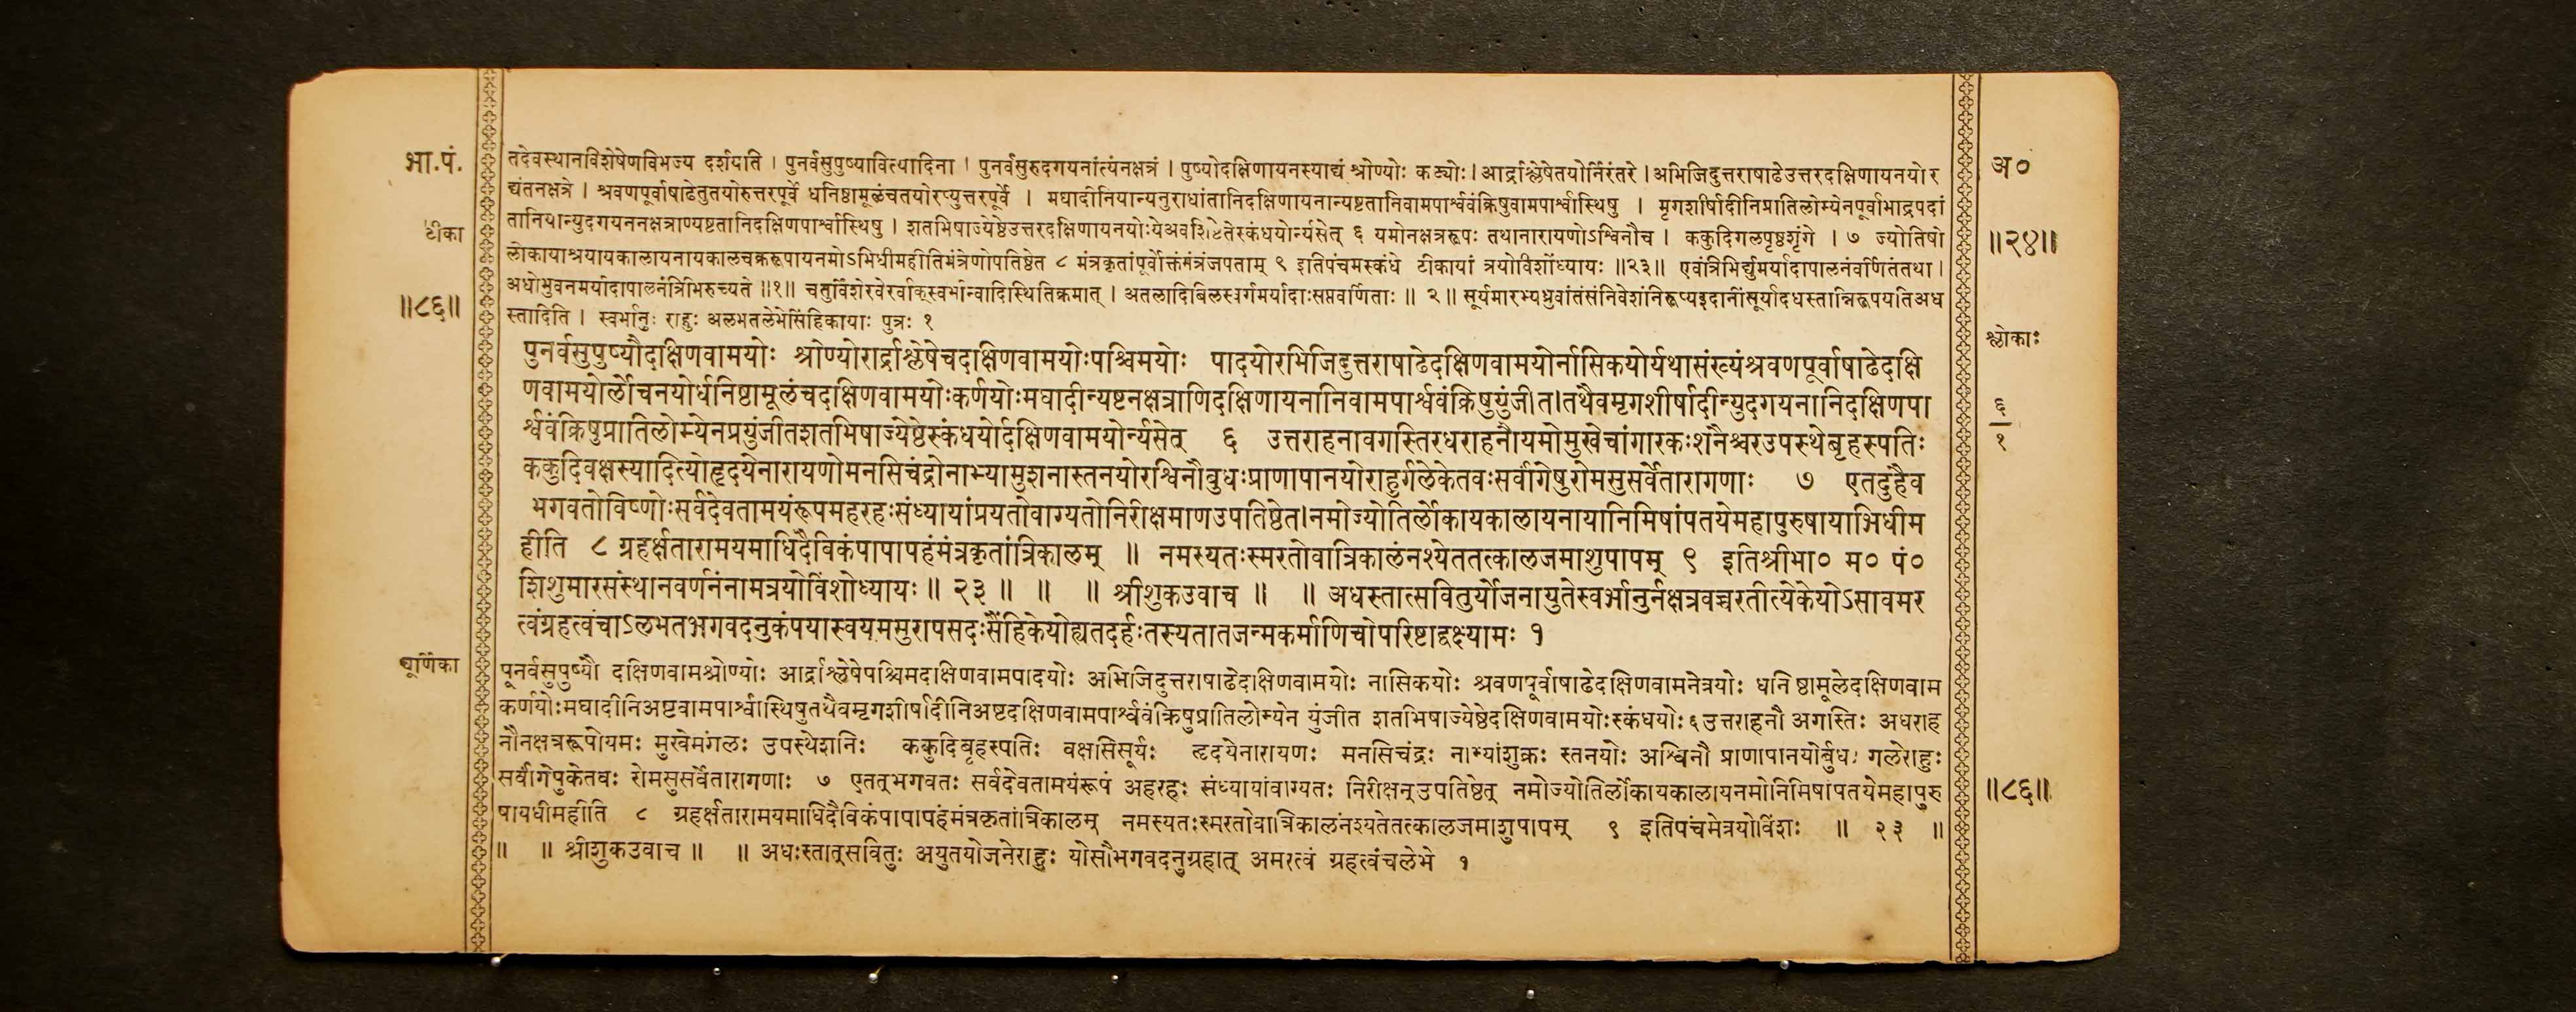 भा.पं.
टीका
॥८६॥
तदेवस्थानविशेषेणविभज्य दर्शयति । पुनर्वसुपुष्यावित्यादिना । पुनर्वसुरुदगयनांत्यंनक्षत्रं । पुष्योदक्षिणायनस्याद्यं श्रोण्योः कट्योः । आर्द्राश्लेषेतयोर्निरंतरे । अभिजिदुत्तराषाढेउत्तरदक्षिणायनयोर
द्यंतनक्षत्रे । श्रवणपूर्वाषाढेतुतयोरुत्तरपूर्वे धनिष्ठामूळंचतयोरप्युत्तरपूर्वे । मघादीनियान्यनुराधांतानिदक्षिणायनान्यष्टतानिवामपार्श्ववंक्रिषुवामपार्श्वास्थिषु । मृगशीर्षादीनिप्रातिलोम्येनपूर्वाभाद्रपदां
तानियान्युदगयननक्षत्राण्यष्टतानिदक्षिणपार्श्वास्थिषु । शतभिषाज्येष्ठेउत्तरदक्षिणायनयोःयेअवशिष्टेतेस्कंधयोर्न्यसेत् ६ यमोनक्षत्ररूपः तथानारायणोऽश्विनौच । ककुदिगलपृष्ठशृंगे । ७ ज्योतिषां
लोकायाश्रयायकालायनायकालचक्ररूपायनमोऽभिधीमहीतिमंत्रेणोपतिष्ठेत ८ मंत्रकृतांपूर्वोक्तंमंत्रंजपताम् ९ इतिपंचमस्कंधे टीकायां त्रयोविंशोंध्यायः ॥२३॥ एवंत्रिभिर्द्युमर्यादापालनंवर्णितंतथा ।
अधोभुवनमर्यादापालनंत्रिभिरुच्यते ॥१॥ चतुर्विंशेरवेरर्वाक्स्वर्भान्वादिस्थितिक्रमात् । अतलादिबिलस्वर्गमर्यादाःसप्तवर्णिताः ॥ २ ॥ सूर्यमारभ्यध्रुवांतंसंनिवेशंनिरूप्यइदानींसूर्यादधस्तान्निरूपयतिअध
स्तादिति । स्वर्भानुः राहुः अलभतलेभेसिंहिकायाः पुत्रः १
पुनर्वसुपुष्यौदक्षिणवामयोः श्रोण्योरार्द्राश्लेषेचदक्षिणवामयोःपश्चिमयोः पादयोरभिजिदुत्तराषाढेदक्षिणवामयोर्नासिकयोर्यथासंख्यंश्रवणपूर्वाषाढेदक्षि
णवामयोर्लोचनयोर्धनिष्ठामूलंचदक्षिणवामयोःकर्णयोःमघादीन्यष्टनक्षत्राणिदक्षिणायनानिवामपार्श्ववंक्रिषुयुंजीत।तथैवमृगशीर्षादीन्युदगयनानिदक्षिणपा
र्श्ववंक्रिषुप्रातिलोम्येनप्रयुंजीतशतभिषाज्येष्ठेस्कंधयोर्दक्षिणवामयोर्न्यसेत् ६ उत्तराहनावगस्तिरधराहनौयमोमुखेचांगारकःशनैश्चरउपस्थेबृहस्पतिः
ककुदिवक्षस्यादित्योहृदयेनारायणोमनसिचंद्रोनाभ्यामुशनास्तनयोरश्विनौबुधःप्राणापानयोराहुर्गलेकेतवःसर्वांगेषुरोमसुसर्वेतारागणाः ७ एतदुहैव
भगवतोविष्णोःसर्वदेवतामयंरूपमहरहःसंध्यायांप्रयतोवाग्यतोनिरीक्षमाणउपतिष्ठेत।नमोज्योतिर्लोकायकालायनायानिमिषांपतयेमहापुरुषायाभिधीम
हीति ८ ग्रहर्क्षतारामयमाधिदैविकंपापापहंमंत्रकृतांत्रिकालम् ॥ नमस्यतःस्मरतोवात्रिकालंनश्येततत्कालजमाशुपापम् ९ इतिश्रीभा० म० पं०
शिशुमारसंस्थानवर्णनंनामत्रयोविंशोध्यायः ॥ २३ ॥ ॥ ॥ श्रीशुकउवाच ॥ ॥ अधस्तात्सवितुर्योजनायुतेस्वर्भानुर्नक्षत्रवच्चरतीत्येकेयोऽसावमर
त्वंग्रहत्वंचाऽलभतभगवदनुकंपयास्वयमसुरापसदःसैंहिकेयोह्यतदर्हःतस्यतातजन्मकर्माणिचोपरिष्टाद्वक्ष्यामः १
चूर्णिका
पूनर्वसुपुष्यौ दक्षिणवामश्रोण्योः आर्द्राश्लेषेपश्चिमदक्षिणवामपादयोः अभिजिदुत्तराषाढेदक्षिणवामयोः नासिकयोः श्रवणपूर्वाषाढेदक्षिणवामनेत्रयोः धनिष्ठामूलेदक्षिणवाम
कर्णयोःमघादीनिअष्टवामपार्श्वास्थिषुतथैवमृगशीर्षादीनिअष्टदक्षिणवामपार्श्ववंक्रिषुप्रातिलोम्येन युंजीत शतभिषाज्येष्ठेदक्षिणवामयोःस्कंधयोः६उत्तराहनौ अगस्तिः अधराह
नौनक्षत्ररूपोयमः मुखेमंगलः उपस्थेशनिः ककुदिबृहस्पतिः वक्षसिसूर्यः हृदयेनारायणः मनसिचंद्रः नाभ्यांशुक्रः स्तनयोः अश्विनौ प्राणापानयोर्बुधः गलेराहुः
सर्वांगेषुकेतवः रोमसुसर्वेतारागणाः ७ एतत्भगवतः सर्वदेवतामयंरूपं अहरहः संध्यायांवाग्यतः निरीक्षन्उपतिष्ठेत् नमोज्योतिर्लोकायकालायनमोनिमिषांपतयेमहापुरु
षायधीमहीति ८ ग्रहर्क्षतारामयमाधिदैविकंपापापहंमंत्रकृतांत्रिकालम् नमस्यतःस्मरतोवात्रिकालंनश्यतेतत्कालजमाशुपापम् ९ इतिपंचमेत्रयोविंशः ॥ २३ ॥
॥ ॥ श्रीशुकउवाच ॥ ॥ अधःस्तात्सवितुः अयुतयोजनेराहुः योसौभगवदनुग्रहात् अमरत्वं ग्रहत्वंचलेभे १
अ०
॥२४॥
श्लोकाः
६
१
॥८६॥